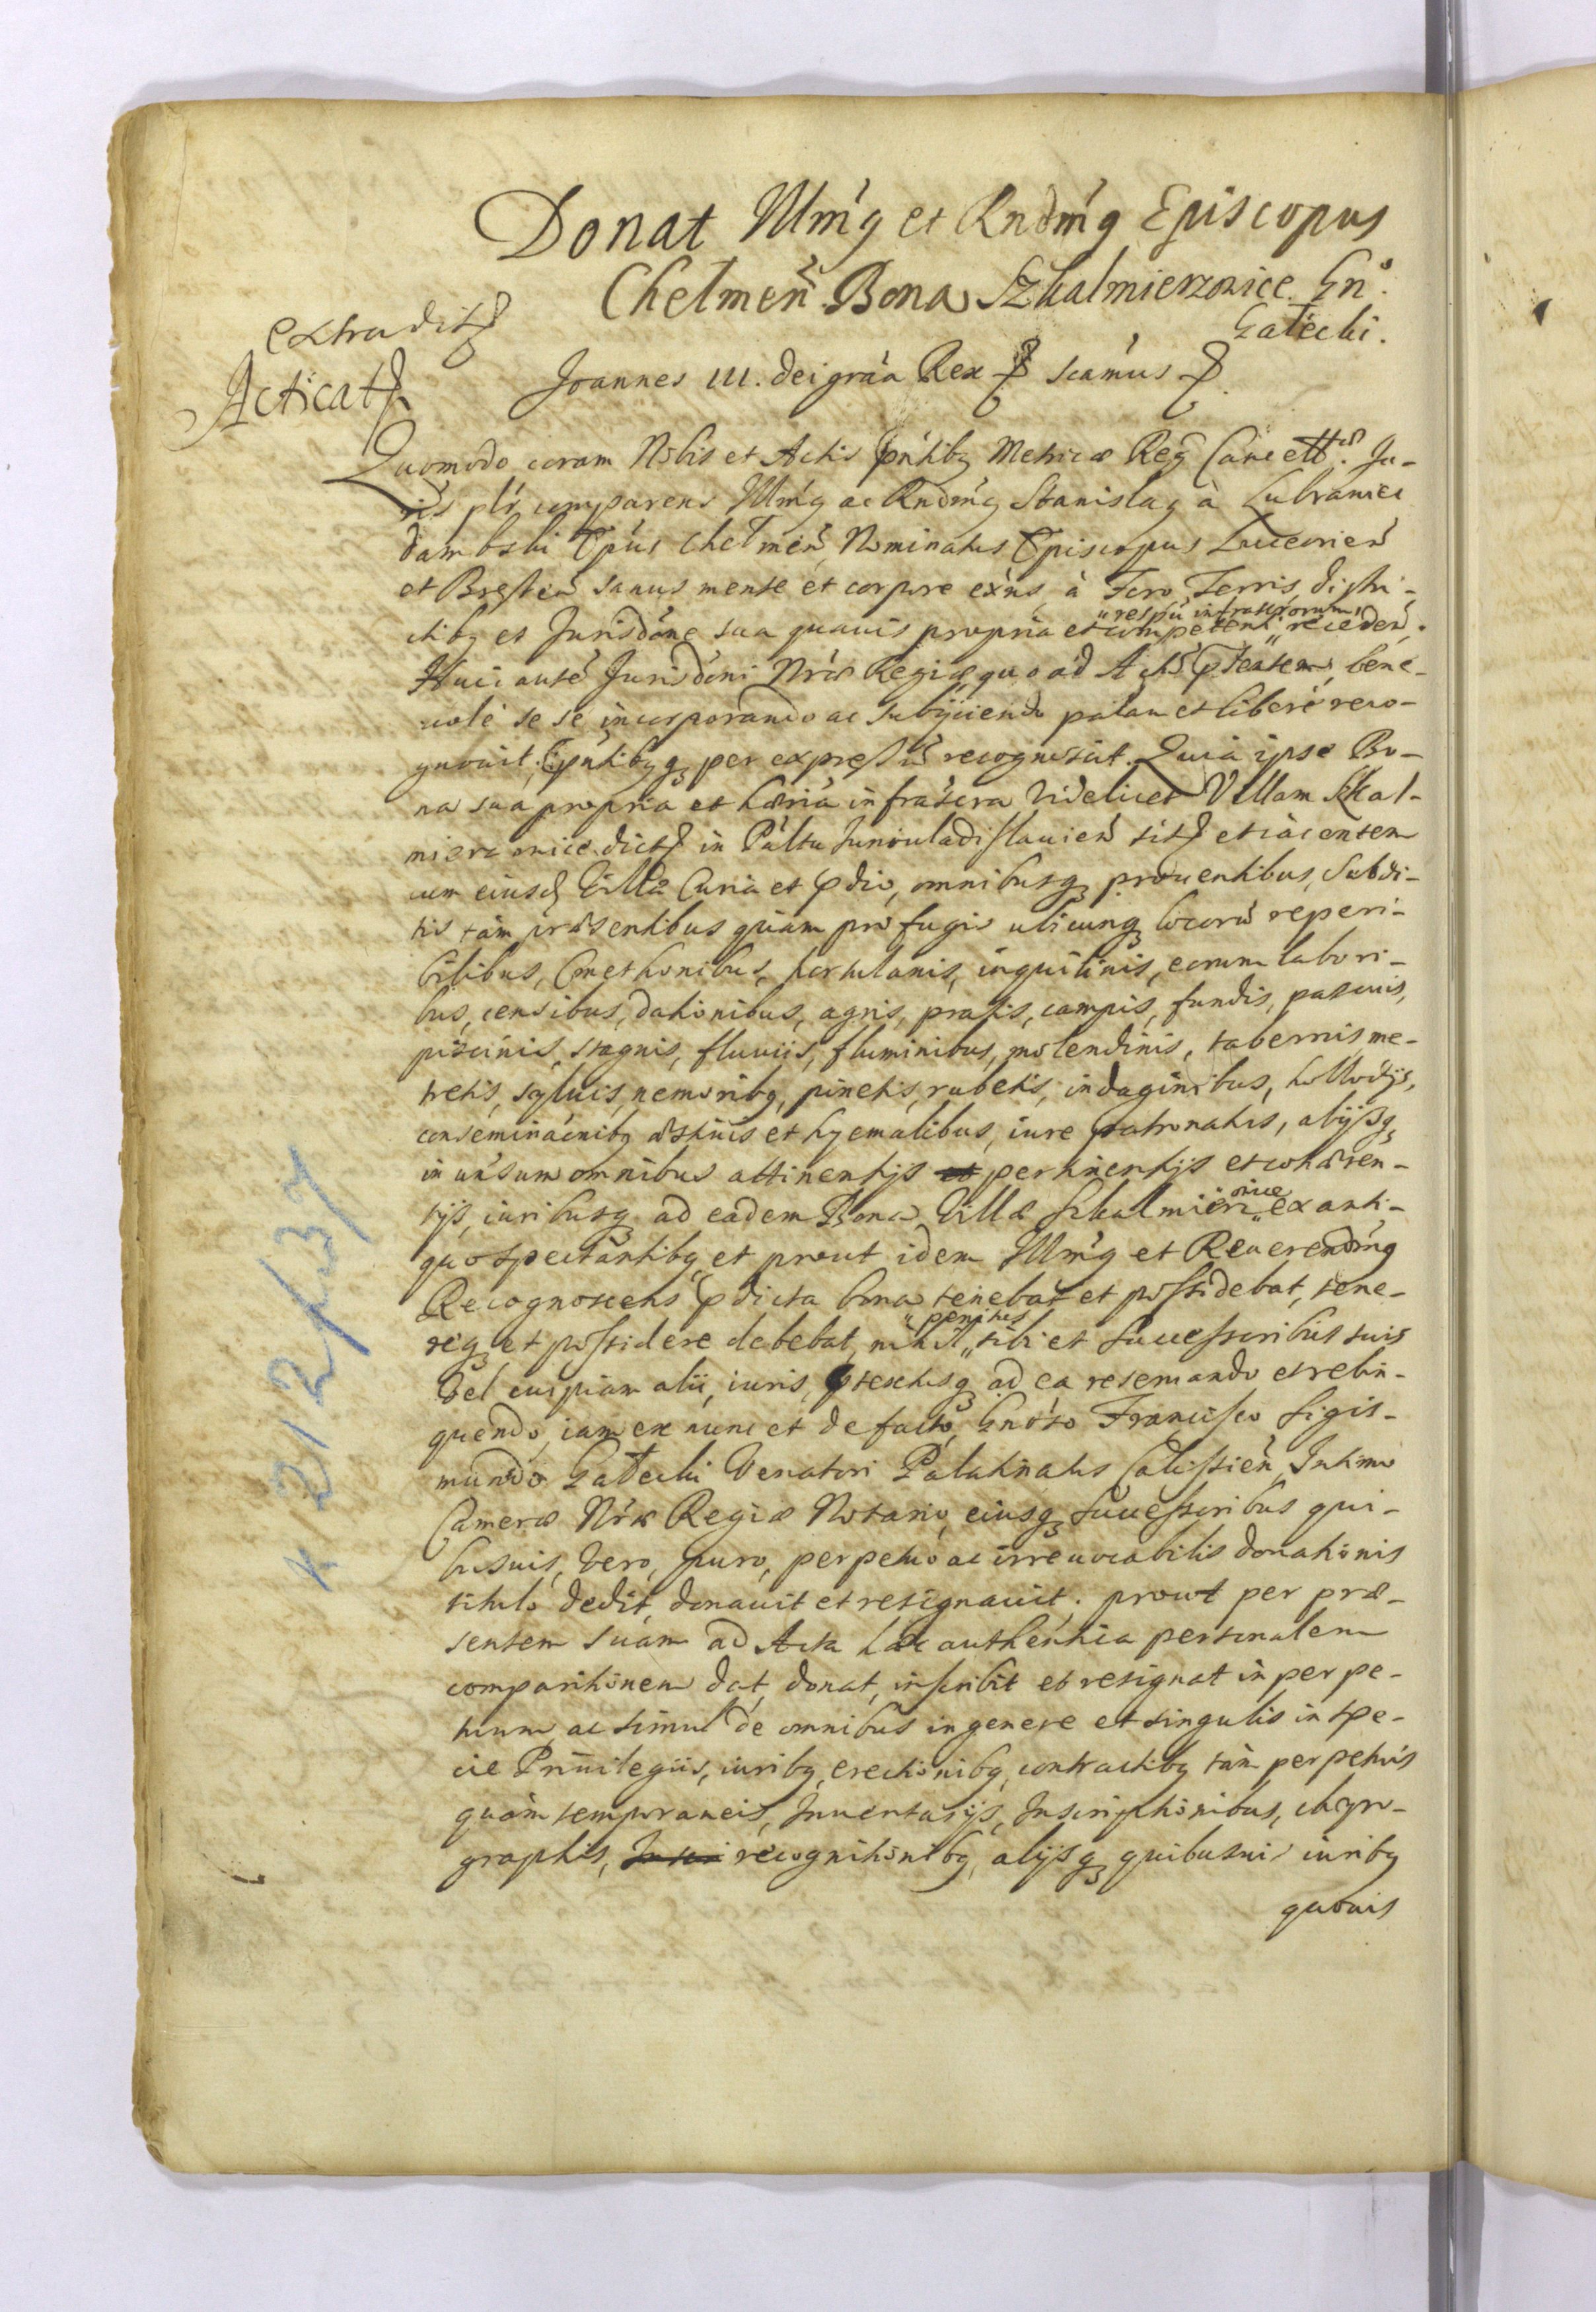 Donat Illm̃9 et Rndm̃9 Episcopus
Chelmeñ. Bona Szkalmierzowice Gn̊.
Gałecki.
extradit
Acticat
Joannes III. dei grãa Rex scãmus
Quomodo coram Nobis et Actis p̃ntib9 Metricæ Reg̃ Cancell. Ju-
ris pl̃r comparens Illm̃9 ac Rndm̃9 Stanisla9 à Lubraniec
dambski Ep̃us Chelmeñ Nominatus Episcopus Luceorień
et Bresteñ sanus mente et corpore exñs, à Foro, Terris, distri-
ctib9 et Jurisdõne sua quauis propria et competenti "respũ infrascriptorum" recedeñ.
Huic autẽ Jurisdõni Nræ Regiæ quoad Actũ p̃sentem bene-
uolè se se incorporando ac subÿciendo palam et liberè reco-
gnouit. P̃ntib9q3 per expressũ recognoscit. Quia ipse Bo-
na sua propria et hæria infrascra videlicet Villam Skal-
mierzowice dict in Pal̃tu Juniuladislauień sit et iacentem
cum eiusd Villæ Curia et p̃dio, omnibusq3 prouentibus, Subdi-
tis tàm præsentibus quàm profugis ubicunq3 locorũ reperi-
bilibus, Cmethonibus, hortulanis, inquilinis, eorum labori-
bus, censibus, dationibus, agris, pratis, campis, fundis, pascuis,
piscinis, stagnis, fluuiis, fluminibus, molendinis, tabernis me-
tretis, syluis, nemorib9, pinetis, rubetis, indaginibus, hollodÿs,
conseminãonib9 æstiuis et hyemalibus, iure patronatus, alÿsq3
in uńsum omnibus attinentÿs et pertinentÿs et cohæren-
tÿs, iuribusq3 ad eadem Bona Villæ Szkalmierzowice ex anti-
quo spectantib9, et prout idem Illm̃9 et Reuerendm̃9
Recognoscens p̃dicta bona tenebat et possidebat, tene-
req3 et possidere debebat, nihil "penitus sibi et Successoribus suis
Vel cuipiam alii, iuris, p̃textusq3 ad ea reseruando et relin-
quendo, iam ex nunc et de facto, Gnoso Francisco Sigis-
mundo Gałecki Venatori Palatinatus Calissień, Intimo
Cameræ Nræ Regiæ Notario, eiusq3 Successoribus qui-
busuis, Vero, puro, perpetuo ac irreuocabilis donationis
titulo dedit, donauit et resignauit. prout per præ-
sentem suam ad Acta hæc authentica personalem
comparitionem dat, donat, inscribit et resignat in perpe-
tuum, ac simul de omnibus in genere et singulis in spe-
cie Priuilegiis, iurib9, erectionib9, contractib9 tàm perpetuis
quàm temporaneis, Inuentarÿs, Inscriptionibus, chyro-
graphis, recognitionib9, alÿsq3 quibusuis iurib9
quouis